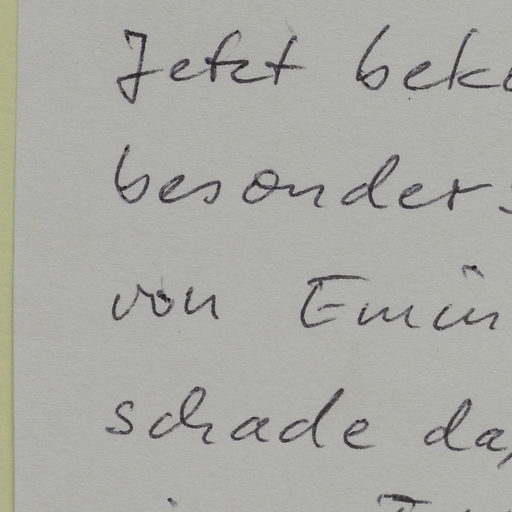 Jetzt beko
besonders
von Emin
schade da,